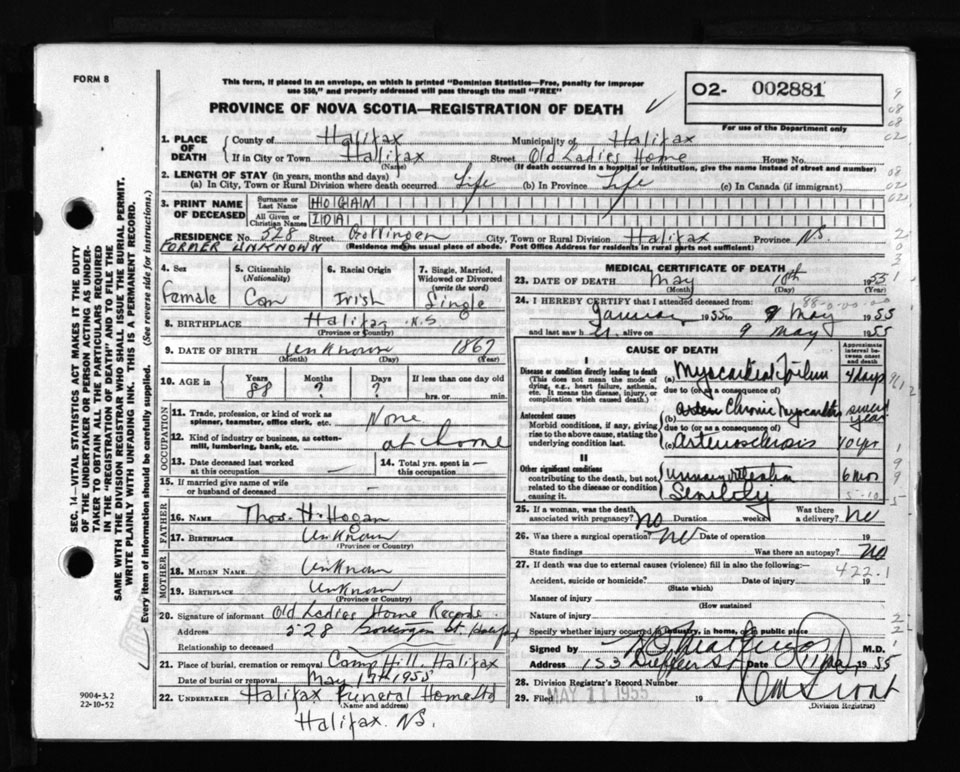 FORM 8
This form, if placed in an envelope, on which is printed "Dominion Statistics—Free, penalty for improper
use $50," and properly addressed will pass through the mail "FREE"
PROVINCE OF NOVA SCOTIA—REGISTRATION OF DEATH
O2- 002881
For use of the Department only
1. PLACE OF DEATH { County of Halifax Municipality of Halifax
If in City or Town Halifax (Name) Street Old Ladies Home House No.
(If death occurred in a hospital or institution, give the name instead of street and number)
2. LENGTH OF STAY (in years, months and days)
(a) In City, Town or Rural Division where death occurred Life (b) In Province Life (c) In Canada (if immigrant)
3. PRINT NAME OF DECEASED { Surname or Last Name HOGAN
All Given or Christian Names IDA
RESIDENCE No. 528 Street Gottingen City, Town or Rural Division Halifax Province N.S.
FORMER UNKNOWN (Residence means usual place of abode. Post Office Address for residents in rural parts not sufficient)
4. Sex Female
5. Citizenship (Nationality) Can
6. Racial Origin Irish
7. Single, Married, Widowed or Divorced (write the word) Single
8. BIRTHPLACE Halifax N.S
(Province or Country)
9. DATE OF BIRTH Unknown 1867
(Month) (Day) (Year)
10. AGE in { Years 88 Months ? Days ? If less than one day old
hrs. or min.
OCCUPATION
11. Trade, profession, or kind of work as spinner, teamster, office clerk, etc. None
12. Kind of industry or business, as cotton-mill, lumbering, bank, etc. at home
13. Date deceased last worked at this occupation —
14. Total yrs. spent in this occupation —
15. If married give name of wife or husband of deceased —
FATHER
16. NAME Thos. H. Hogan
17. BIRTHPLACE Unknown
(Province or Country)
MOTHER
18. MAIDEN NAME Unknown
19. BIRTHPLACE Unknown
(Province or Country)
20. Signature of informant Old Ladies Home Records
Address 528 Gottingen St. Halifax
Relationship to deceased
21. Place of burial, cremation or removal Camp Hill, Halifax
Date of burial or removal May 1955
22. UNDERTAKER Halifax Funeral Home Ltd
(Name and address)
Halifax. N.S.
MEDICAL CERTIFICATE OF DEATH
23. DATE OF DEATH May 10th 1955
(Month) (Day) (Year)
24. I HEREBY CERTIFY that I attended deceased from:
January 1955 to 9 May 1955
and last saw h er alive on 9 May 1955
CAUSE OF DEATH
Approximate interval between onset and death
I
Disease or condition directly leading to death (a) Myocardial Failure 4 days
(This does not mean the mode of dying, e.g., heart failure, asthenia, etc. It means the disease, injury, or complication which caused death.)
due to (or as a consequence of)
Antecedent causes (b) Chronic Myocarditis several years
Morbid conditions, if any, giving rise to the above cause, stating the underlying condition last.
due to (or as a consequence of)
(c) Arteriosclerosis 10 yrs
II
Other significant conditions contributing to the death, but not related to the disease or condition causing it.
6 mos
Senility
25. If a woman, was the death associated with pregnancy? No Duration weeks Was there a delivery? No
26. Was there a surgical operation? No Date of operation 19
State findings Was there an autopsy? No
27. If death was due to external causes (violence) fill in also the following:— 422.1
Accident, suicide or homicide? (State which) Date of injury 19
Manner of injury
(How sustained)
Nature of injury
Specify whether injury occurred in industry, in home, or in public place
Signed by M.D.
Address 153 St. Date 11 May 1955
28. Division Registrar's Record Number
29. Filed MAY 11 1955 19
(Division Registrar)
SEC. 14—VITAL STATISTICS ACT MAKES IT THE DUTY
OF THE UNDERTAKER OR PERSON ACTING AS UNDER-
TAKER TO OBTAIN ALL THE PARTICULARS REQUIRED
IN THE "REGISTRATION OF DEATH" AND TO FILE THE
SAME WITH THE DIVISION REGISTRAR WHO SHALL ISSUE THE BURIAL PERMIT.
WRITE PLAINLY WITH UNFADING INK. THIS IS A PERMANENT RECORD.
Every item of information should be carefully supplied. (See reverse side for instructions.)
9004-3.2
22-10-52